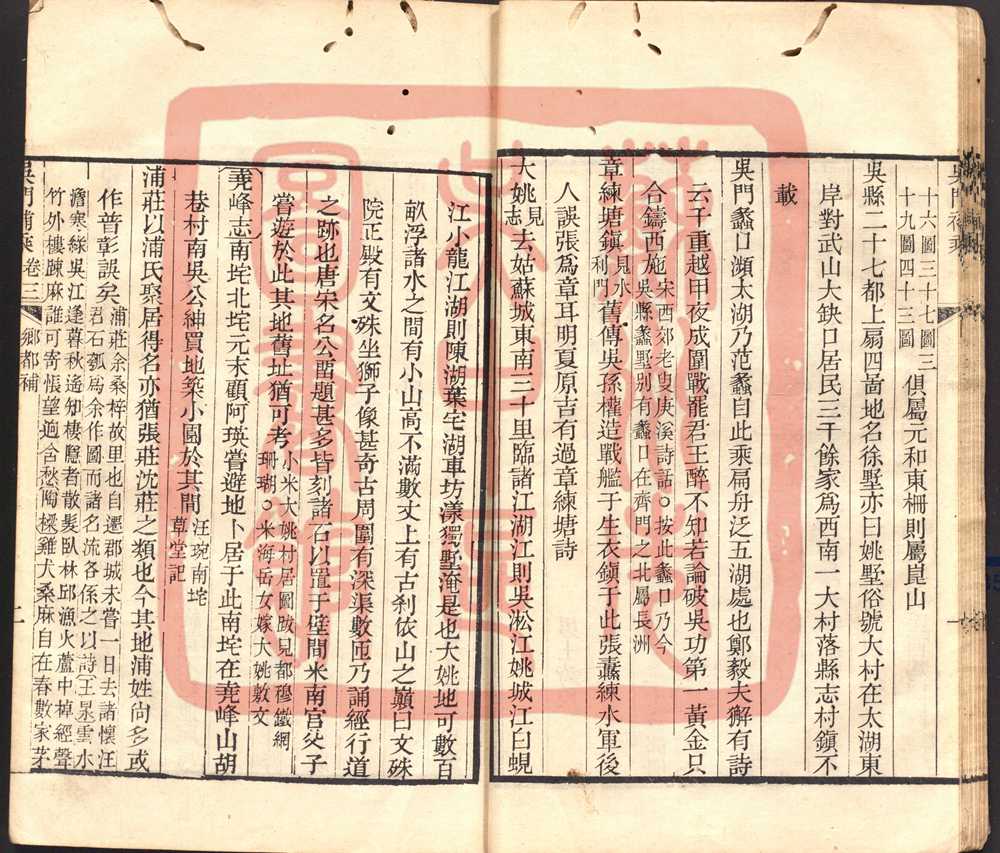 十六圖三十七圖三
十九圖四十三圖
俱屬元和東柵則屬崑山
吳縣二十七都上扇四啚地名徐墅亦曰姚墅俗號大村在太湖東
岸對武山大缺口居民三千餘家爲西南一大村落縣志村鎮不
載
吳門蠡口瀕太湖乃范蠡自此乘扁舟泛五湖處也鄭毅夫獬有詩
云千重越甲夜成圍戰罷君王醉不知若論破吳功第一黃金只
合鑄西施
宋西郊老叟庚溪詩話○按此蠡口乃今
吳縣蠡墅別有蠡口在齊門之北屬長洲
章練塘鎮
見水
利門
舊傳吳孫權造戰艦于生衣鎮于此張蠹練水軍後
人誤張爲章耳明夏原吉有過章練塘詩
大姚
見
志
去姑蘇城東南三十里臨諸江湖江則吳淞江姚城江白蜆
江小龍江湖則陳湖葉宅湖車坊漾獨墅淹是也大姚地可數百
畝浮諸水之間有小山高不滿數丈上有古刹依山之巔曰文殊
院正殿有文殊坐獅子像甚奇古周圍有深渠數匝乃誦經行道
之跡也唐宋名公畱題甚多皆刻諸石以置于壁間米南宫父子
嘗遊於此其地舊址猶可考
小米大姚村居圖跋見都穆鐵網
珊瑚○米海岳女嫁大姚敷文
堯峰志南垞北垞元末顧阿瑛嘗避地卜居于此南垞在堯峰山胡
巷村南吳公紳買地築小園於其間
汪琬南垞
草堂記
浦莊以浦氏聚居得名亦猶張莊沈莊之類也今其地浦姓尙多或
作普彰誤矣
浦莊余桑梓故里也自遷郡城未嘗一日去諸懷汪
君石瓠爲余作圖而諸名流各係之以詩王杲雲水
澹寒綠吳江逢暮秋遙知棲隱者散髮臥林邱漁火蘆中棹經聲
竹外樓踈麻誰可寄悵望迤含愁陶樑雞犬桑麻自在春數家茅
吳門補乘 卷三 鄉都補
二